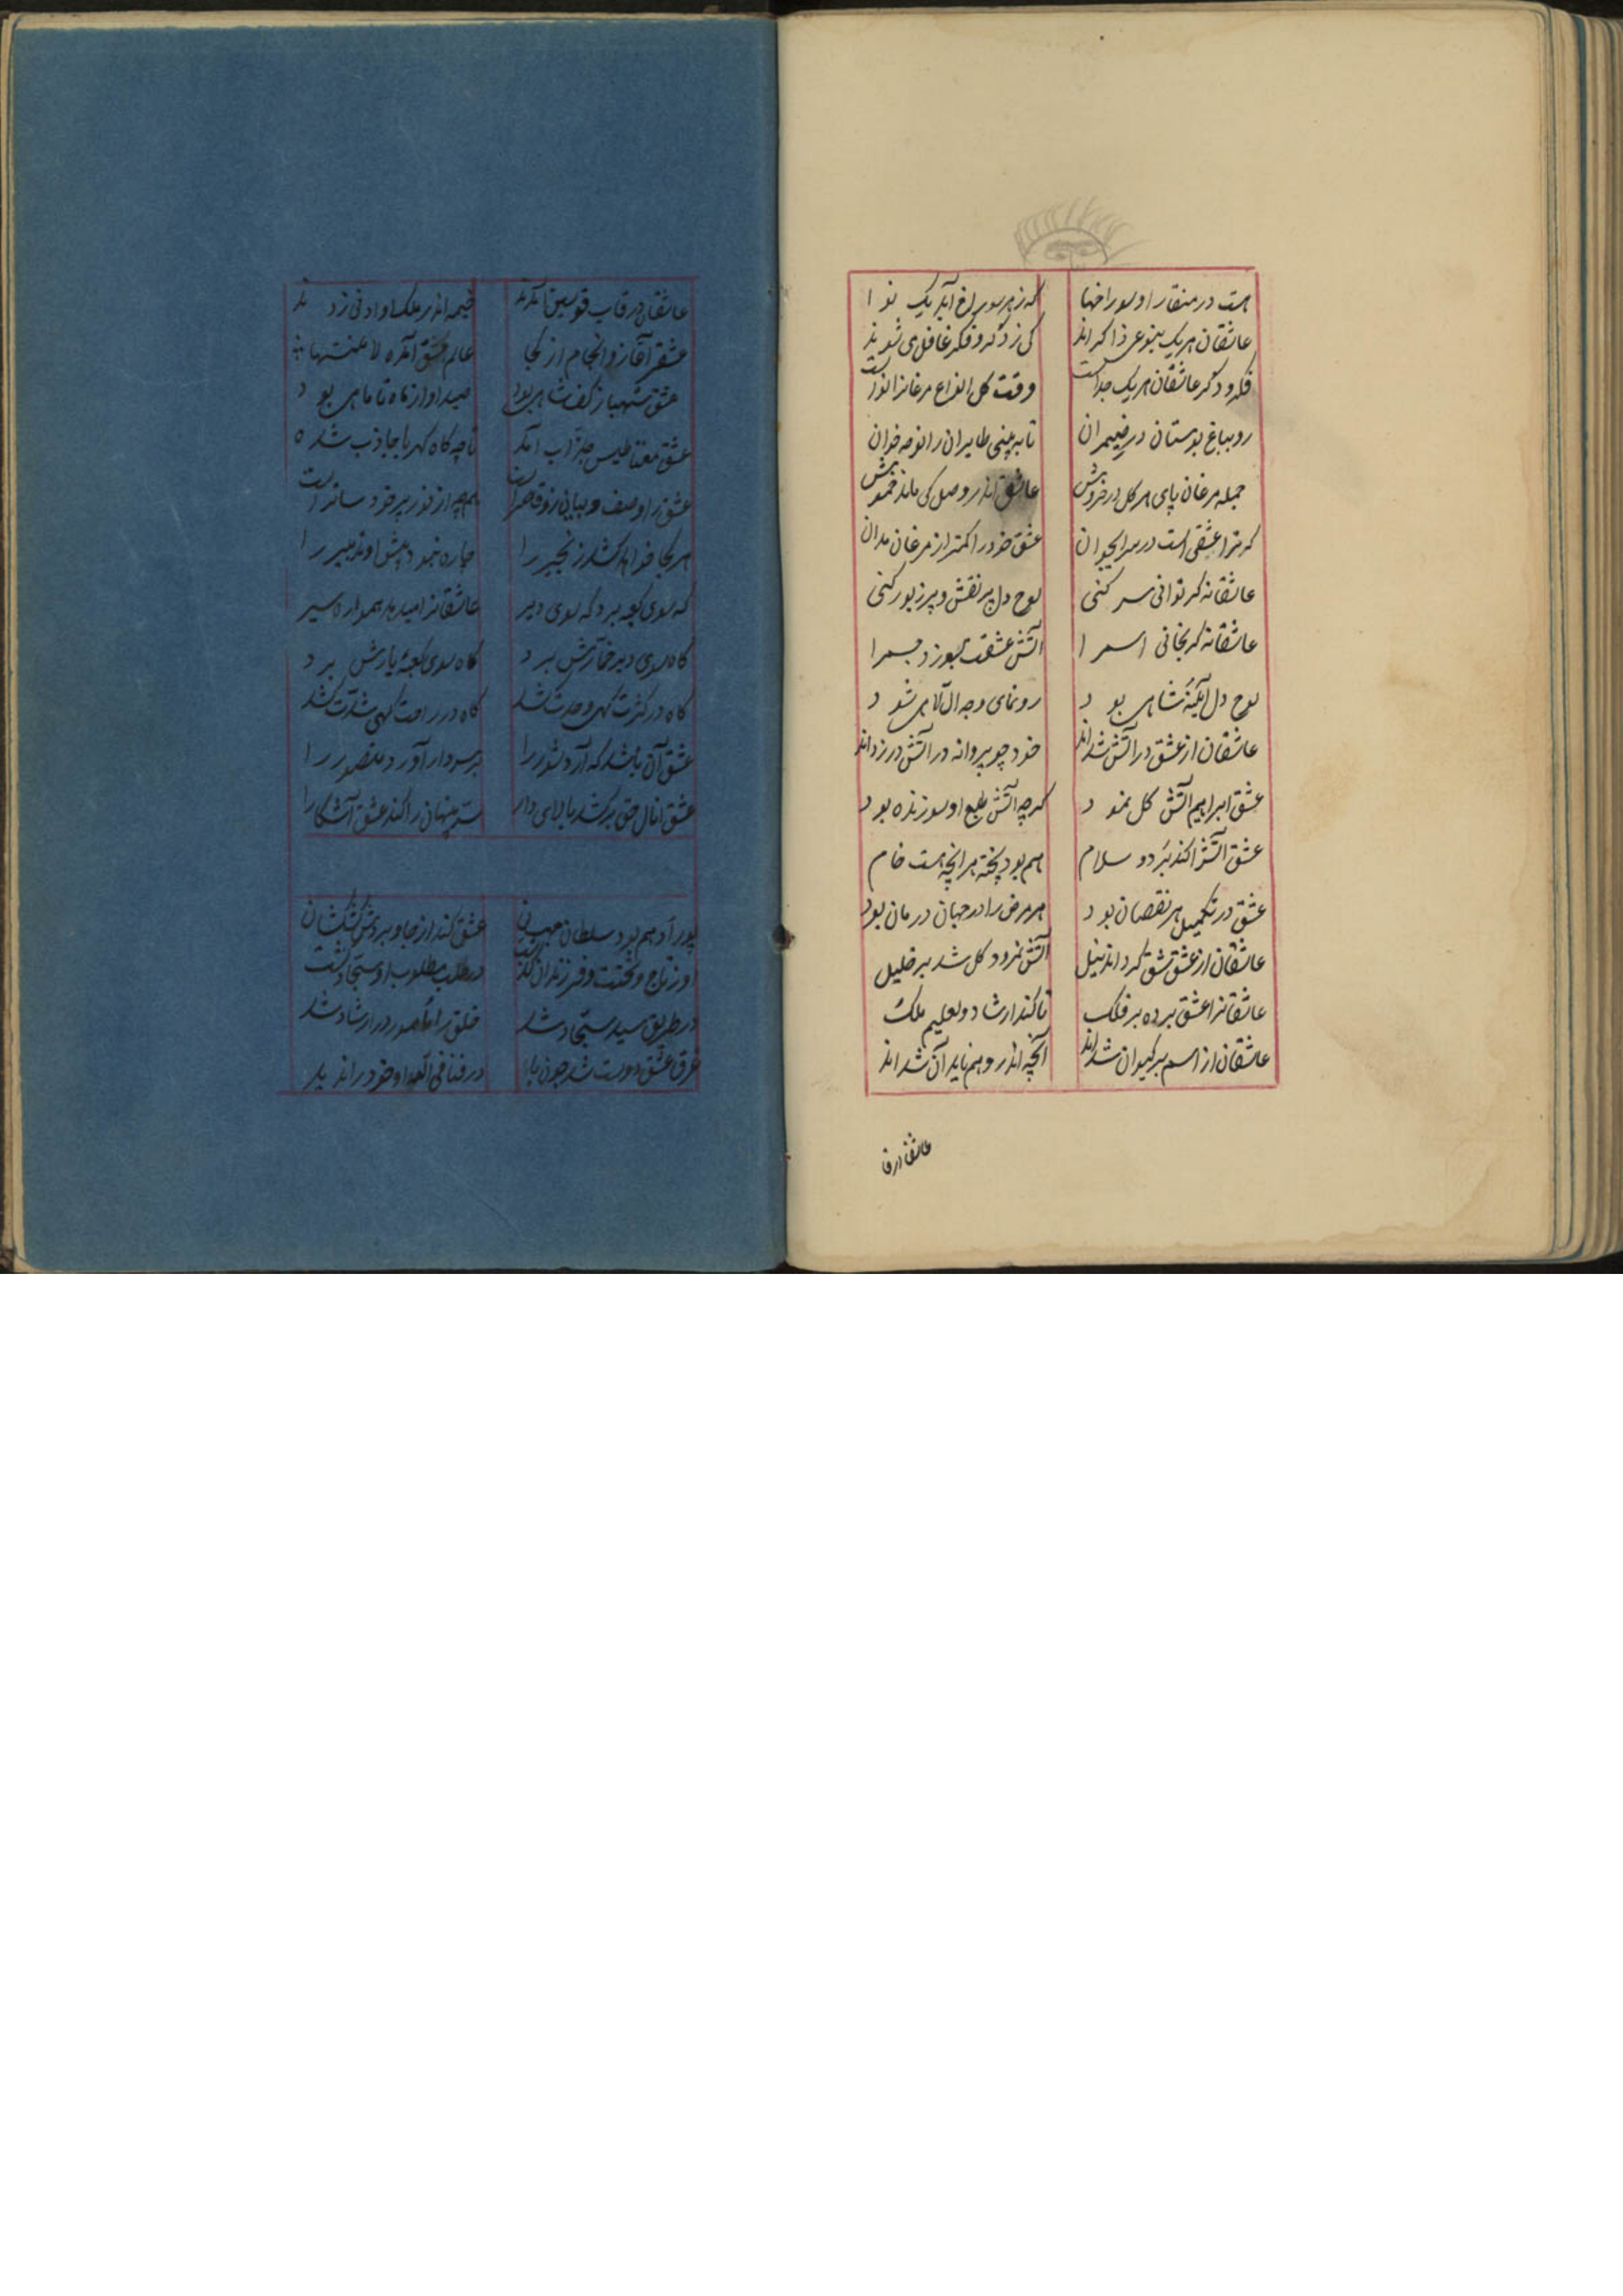 هست در منقار او سوراخها که ز هر سوراخ آید یک نوا
عاشقان هریک بنوعی ذاکراند کی ز ذکر و فکر غافل می شوند
فکر و ذکر عاشقان هریک جداست وقت گل انواع مرغانرا نواست
رو بباغ بوستان در ضیمران تا به بینی طایران را نوحه خوان
جمله مرغان پای هر گل در خروش عاشق اندر وصل کی ماند خموش
گر ترا عشقی است در سر ایجوان عشق خود را کمتر از مرغان مدان
عاشقانه گر توانی سر کنی لوح دل پر نقش و پر زیور کنی
عاشقانه گر بخانی اسم را آتش عشقت بسوزد جسم را
لوح دل آیینه شاهی بود رونمای وجه اللهی شود
عاشقان از عشق در آتش شداند خود چو پروانه در آتش در زداند
عشق ابراهیم آتش گل نمود گرچه آتش طبع او سوزنده بود
عشق آتش را کند برد و سلام هم بود پخته هر انچه هست خام
عشق در تکمیل هر نقصان بود هر مرض را در جهان درمان بود
عاشقان از عشق شق کرداند نیل آتش نمرود گل شد بر خلیل
عاشقانرا عشق برده بر فلک تا کند ارشاد و تعلیم ملک
عاشقان از اسم بر کیوان شداند آنچه اندر وهم ناید آن شداند
عاشقان در قاب قوسین آمدند خیمه اندر ملک او ادنی زدند
عشق را آغاز و انجام از کجا عالم عشق آمده لا منتها
عشق شهباز بود صید او از ماه تا ماهی بود
عشق مغناطیس جذاب آمد تا چه کاه کهربا جاذب شده
عشق را وصف و بیانی زو قاصر است همچه از نور بر خود ساتر است
هر کجا خواهد کشد زنجیر را چاره نبود پیش او تدبیر را
که سوی کعبه برد که سوی دیر عاشقانرا میدهد همواره سیر
گاه سوی دیر خمارش برد گاه سوی کعبه یارش برد
گاه در کثرت گهی وحدت کشد گاه در راحت گهی شدت کشد
عشق آن باشد که آرد شور را بر سر دار آورد منصور را
عشق انال حق برکشد بالای دار سر پنهان را کند عشق آشکار
پور آدهم بود سلطان عشق کند از جا و بردش کشکشان
او ز تاج و تخت و فرزندان گذشت در طلب مطلوب او سجاد گشت
در طریق سید سجاد شد خلق را مأمور در ارشاد شد
غرق عشق دوست شد چون در فنا فی الله او خود را ند
عاشقان در قا